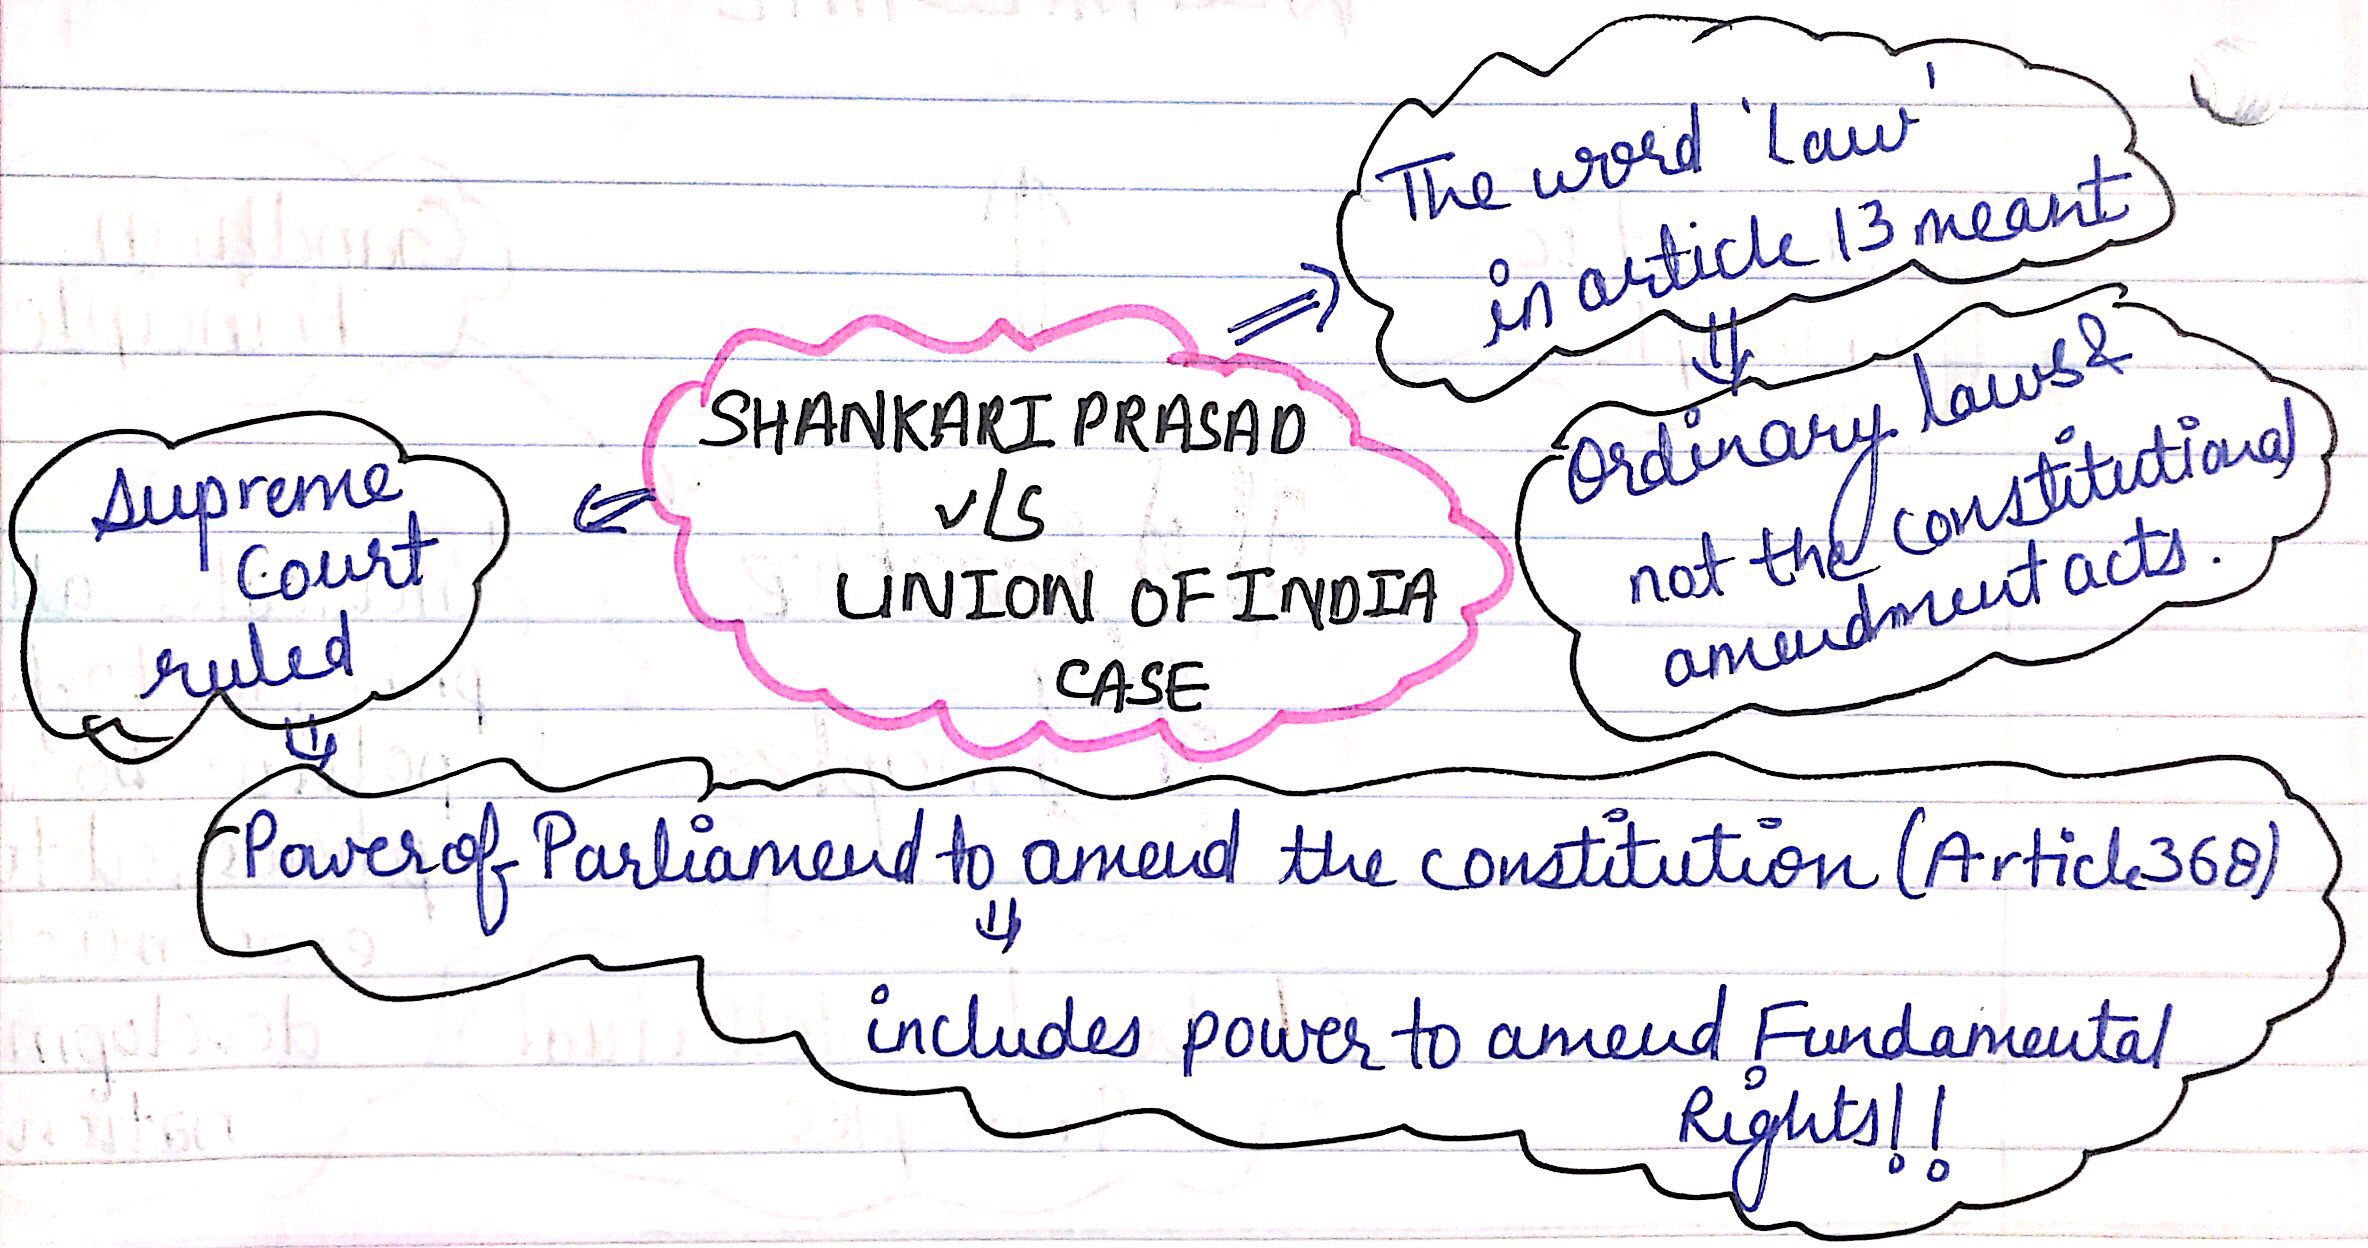 SHANKARI PRASAD
v/s
UNION OF INDIA
CASE
The word 'law'
in article 13 meant
Ordinary laws &
not the constitutional
amendment acts.
Supreme
Court
ruled
Power of Parliament to amend the constitution (Article 368)
includes power to amend Fundamental
Rights!!